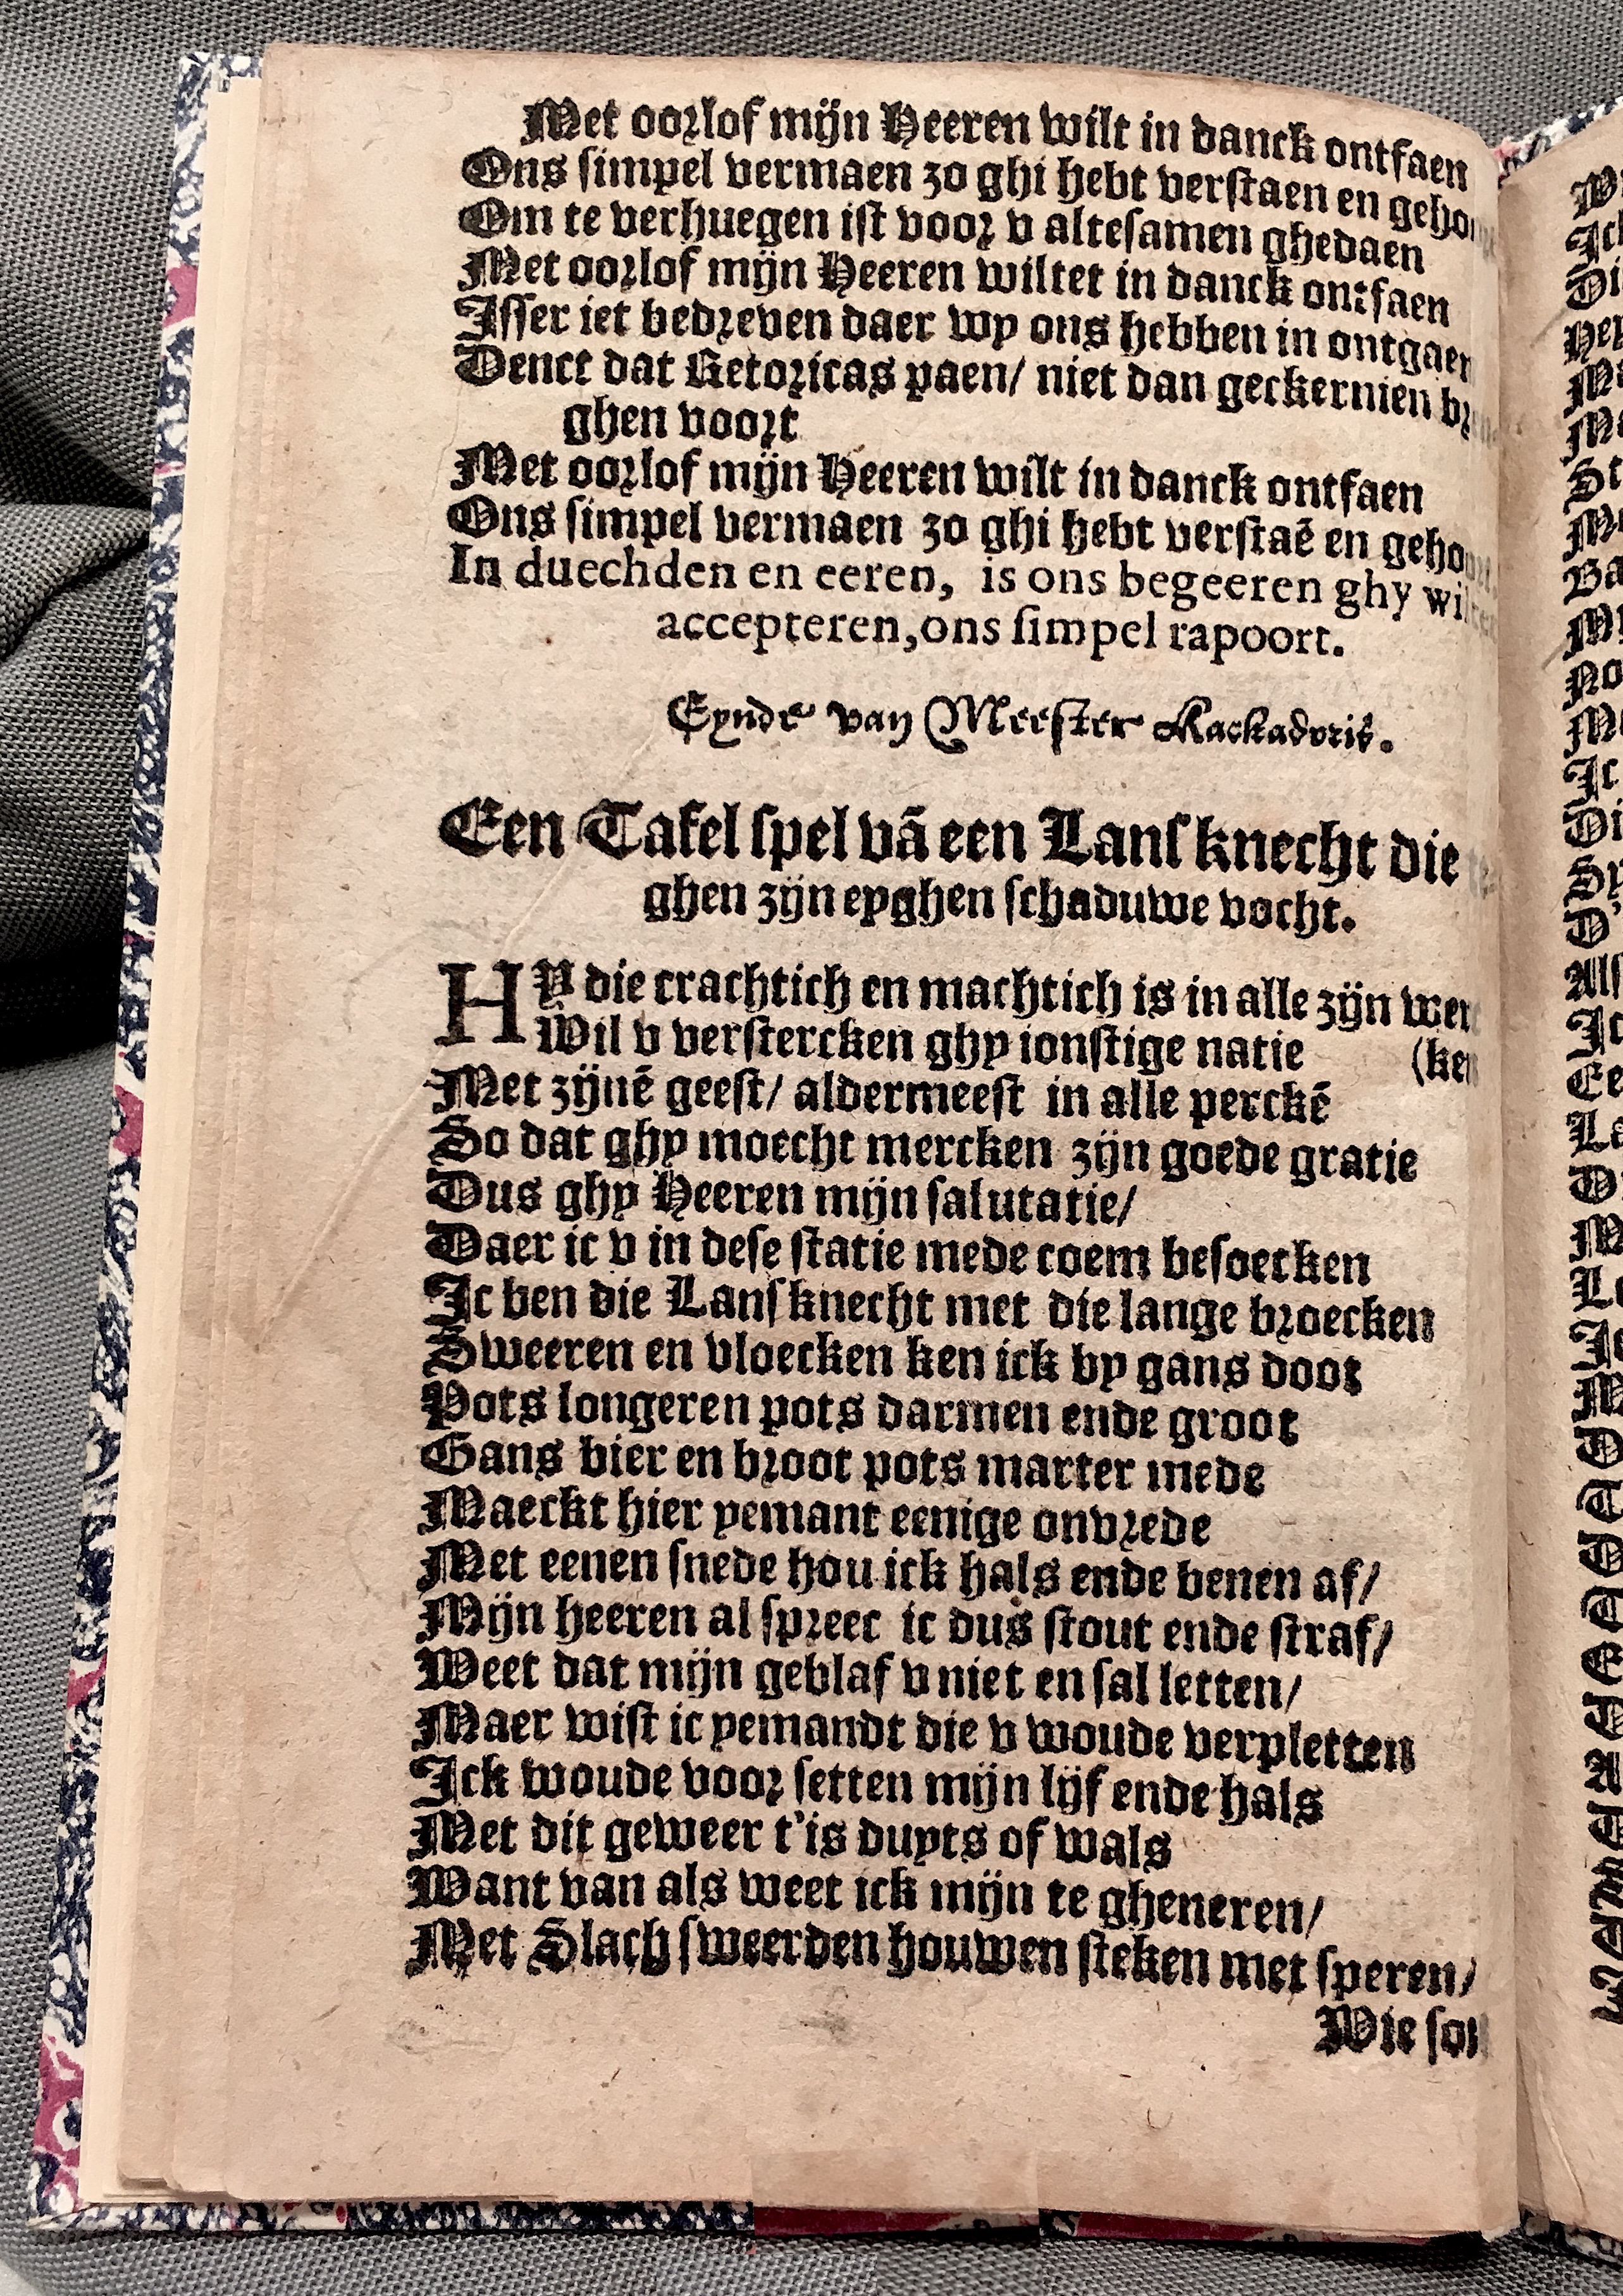 Met oorlof mijn Heeren wilt in danck ontfaen
Ons simpel vermaen zo ghi hebt verstaen en geho
Om te verhuegen ist voor v altesamen ghedaen
Met oorlof mijn Heeren wiltet in danck ontfaen
Isser iet bedreven daer wy ons hebben in ontgaen
Denct dat Retoricas paen/ niet dan geckernien br
ghen voort
Met oorlof mijn Heeren wilt in danck ontfaen
Ons simpel vermaen zo ghi hebt verstaē en geho
In duechden en eeren, is ons begeeren ghy wil
accepteren, ons simpel rapoort.
Eynde van Meester Kackadoris.
Een Tafel spel vā een Lansknecht die te
ghen zijn eyghen schaduwe vocht.
HY die crachtich en machtich is in alle zijn wer
Wil v verstercken ghy ionstige natie (ken
Met zijnē geest/ aldermeest in alle perckē
So dat ghy moecht mercken zijn goede gratie
Dus ghy Heeren mijn salutatie/
Daer ic v in dese statie mede coem besoecken
Ic ben die Lansknecht met die lange broecken
Sweeren en vloecken ken ick by gans doot
Pots longeren pots darmen ende groot
Gans bier en broot pots marter mede
Maeckt hier yemant eenige onvrede
Met eenen snede hou ick hals ende benen af/
Mijn heeren al spreec ic dus stout ende straf/
Weet dat mijn geblaf v niet en sal letten/
Maer wist ic yemandt die v woude verpletten
Ick woude voor setten mijn lijf ende hals
Met dit geweer t'is duyts of wals
Want van als weet ick mijn te gheneren/
Met Slach sweerden houwen steken met speren/
Wie sou